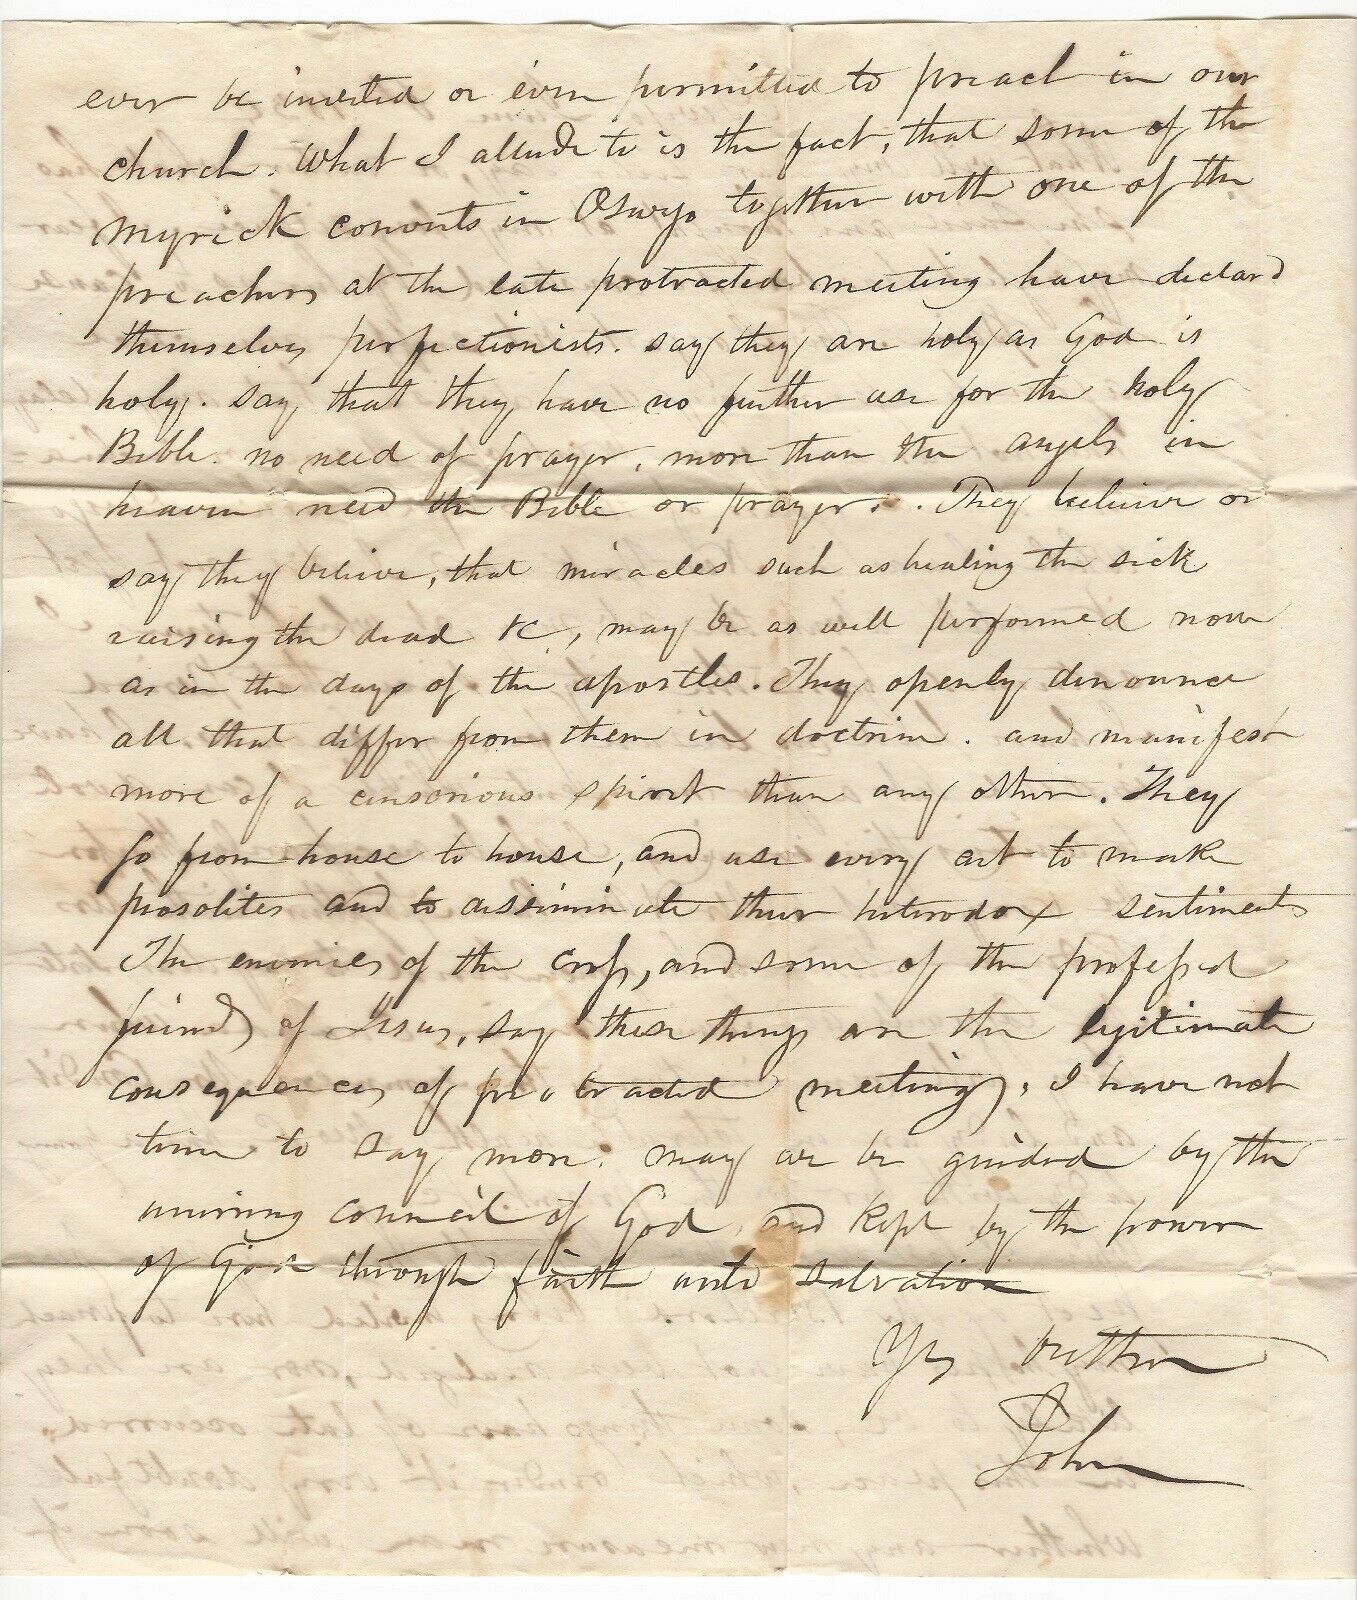 ever be invited or even permitted to preach in our
church. What I allude to is the fact, that some of the
Myrick converts in Oswego together with one of the
preachers at the late protracted meeting have declard
themselves perfectionists. say they are holy as God is
holy. say that they have no further use for the holy
Bible. no need of prayer, more than the angels in
heaven need the Bible or prayer. They believe or
say they believe, that miracles such as healing the sick
raising the dead &c, may be as well performed now
as in the days of the apostles. They openly denounce
all that differ from them in doctrine. and manifest
more of a censorious spirit than any other. They
go from house to house, and use every art to make
prosolites and to disseminate their heterodox sentiments
The enemies of the cross, and some of the professed
friends of Jesus, say these things are the legitimate
consequences of protracted meetings. I have not
time to say more. may we be guided by the
unerring council of God, and kept by the power
of God through faith unto salvation
Yr brother
John